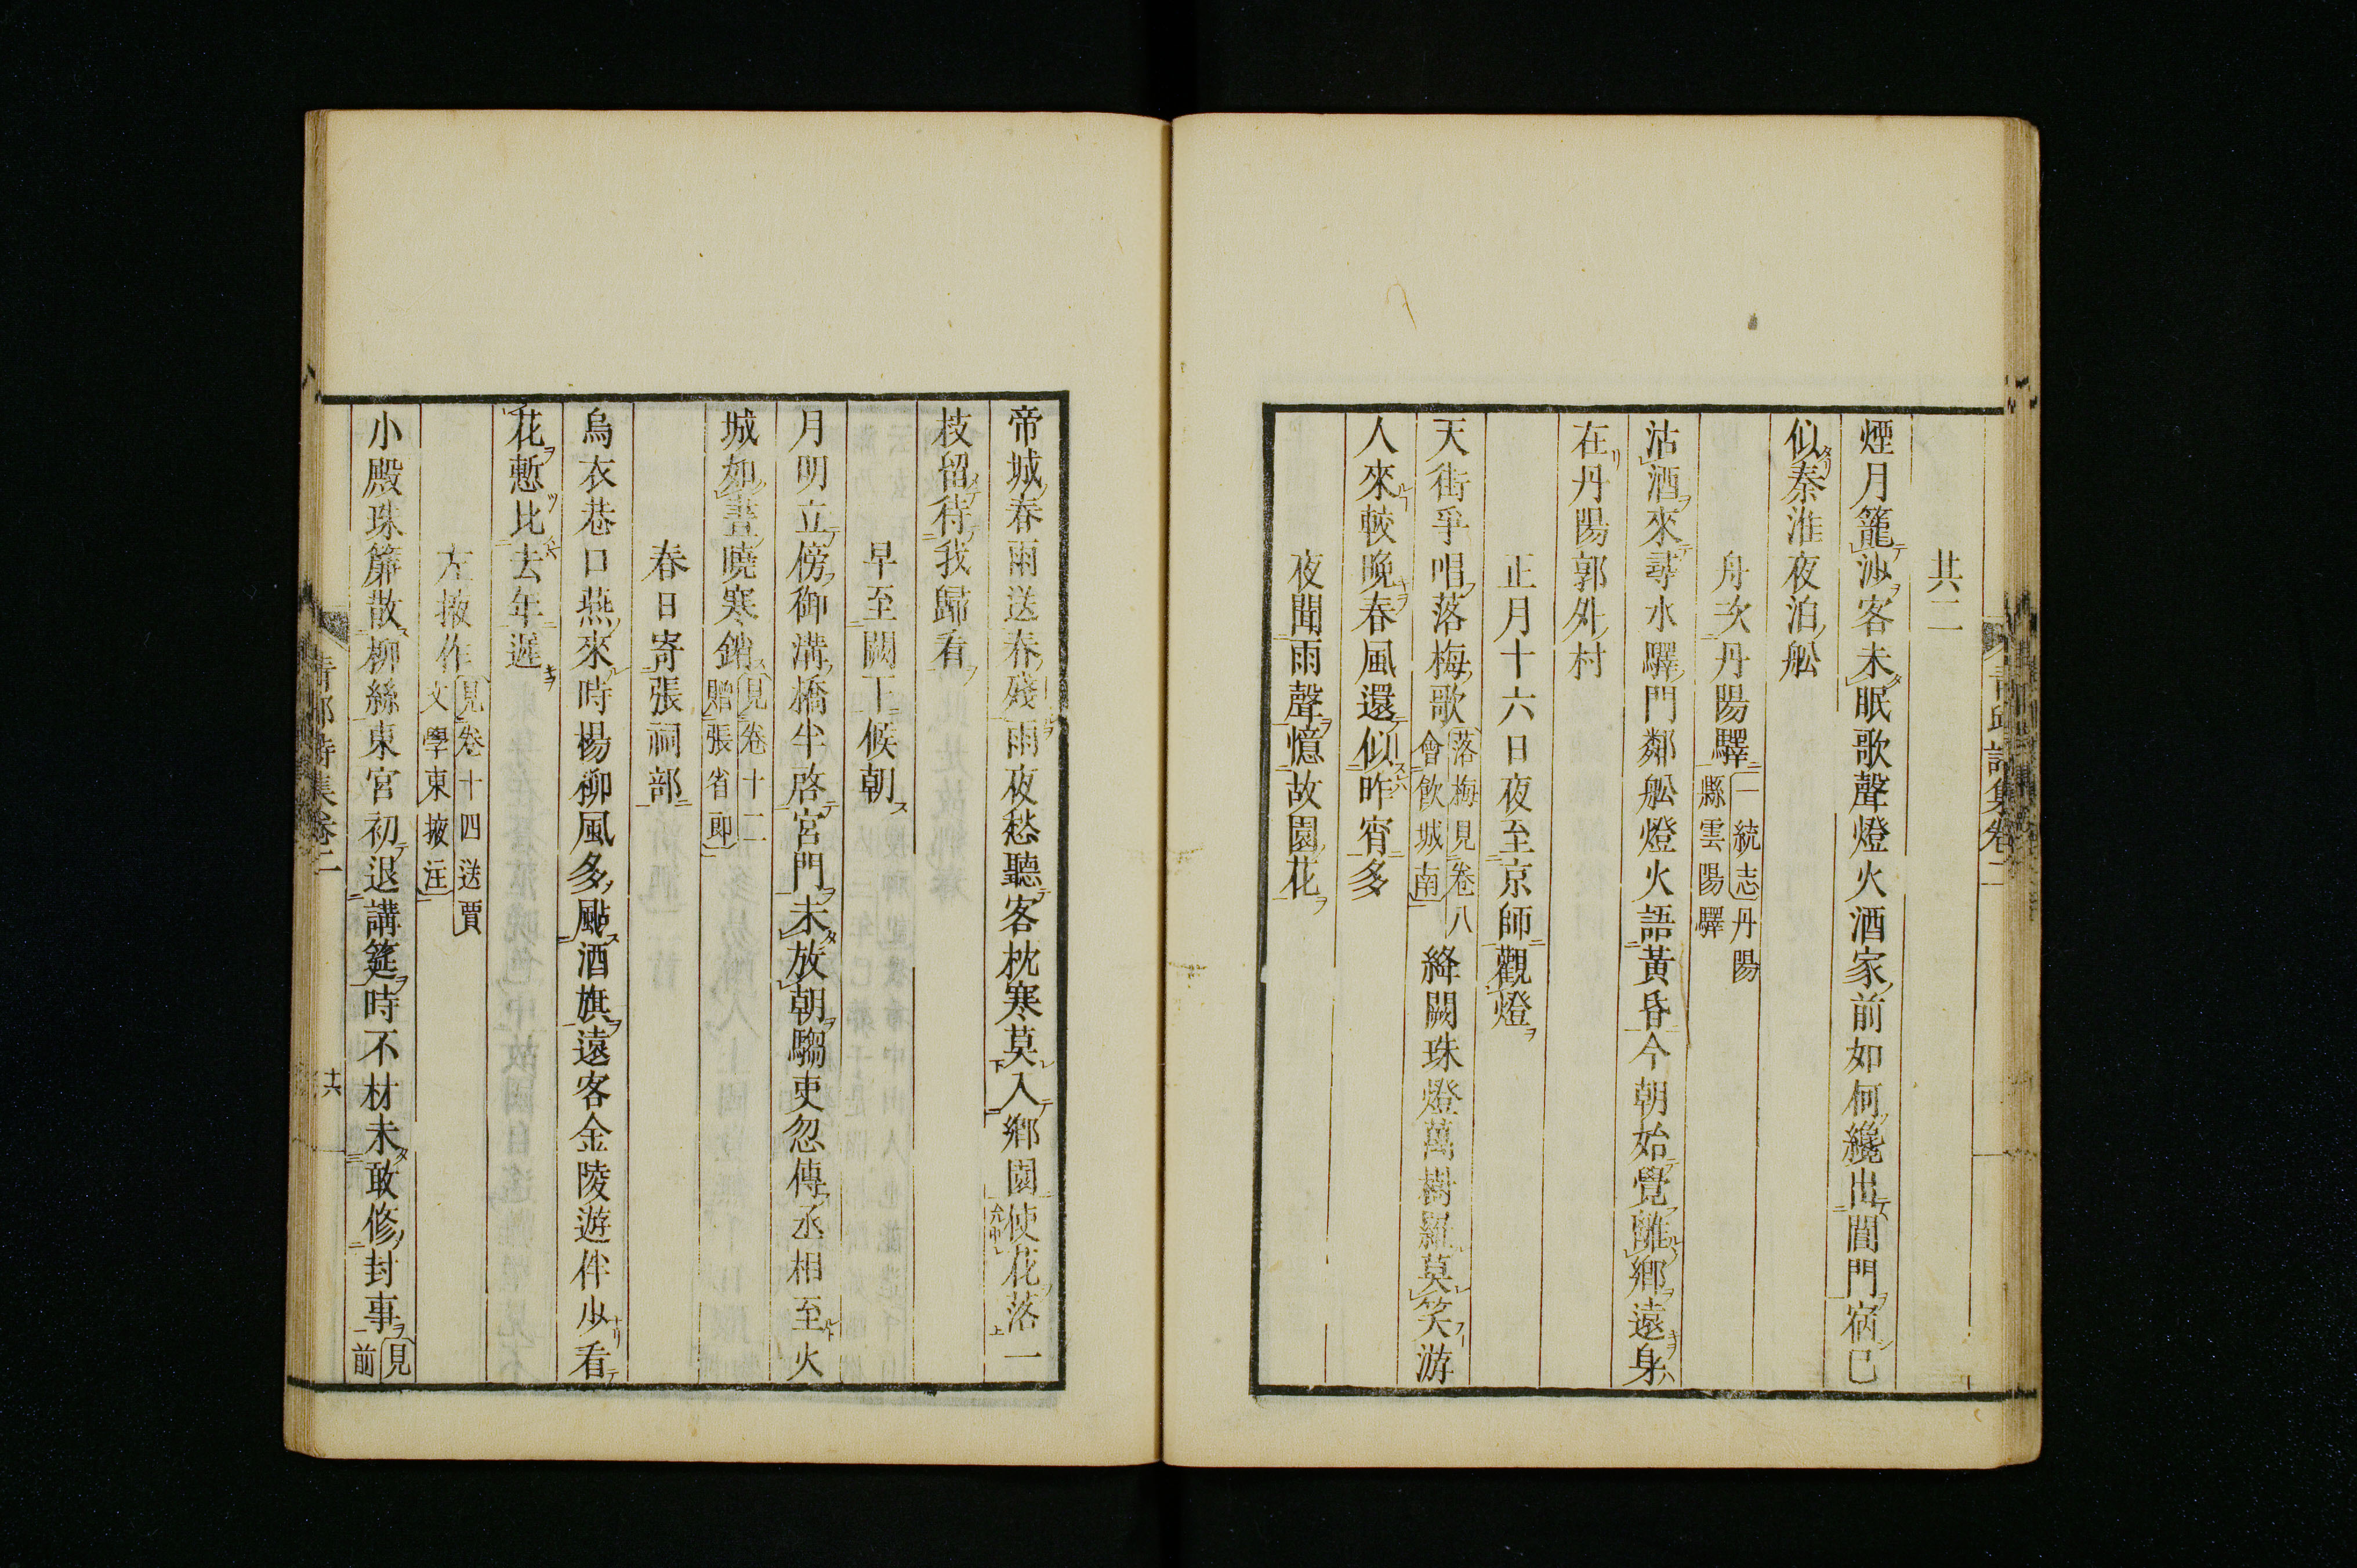 其二
煙月籠沙客未眠歌聲燈火酒家前如何纔出閶門宿已
似秦淮夜泊船
舟次丹陽驛一統志丹陽縣雲陽驛
沽酒來尋水驛門鄰船燈火語黃昏今朝始覺離鄉遠身
在丹陽郭外村
正月十六日夜至京師觀燈
天街爭唱落梅歌落梅見卷八會飲城南絳闕珠燈萬樹羅莫笑游
人來較晚春風還似昨宵多
夜聞雨聲憶故園花
帝城春雨送春殘雨夜愁聽客枕寒莫入鄉園使花落一
枝留待我歸看
早至闕下候朝
月明立傍御溝橋半啓宮門未放朝騶吏忽傳丞相至火
城如晝曉寒銷見卷十二贈張省郎
春日寄張祠部
烏衣巷口燕來時楊柳風多颭酒旗遠客金陵遊伴少看
花慙比去年遲
左掖作見卷十四送賈文學東掖注
小殿珠簾散柳絲東宮初退講筵時不材未敢修封事見前
青邱詩集卷二
十六